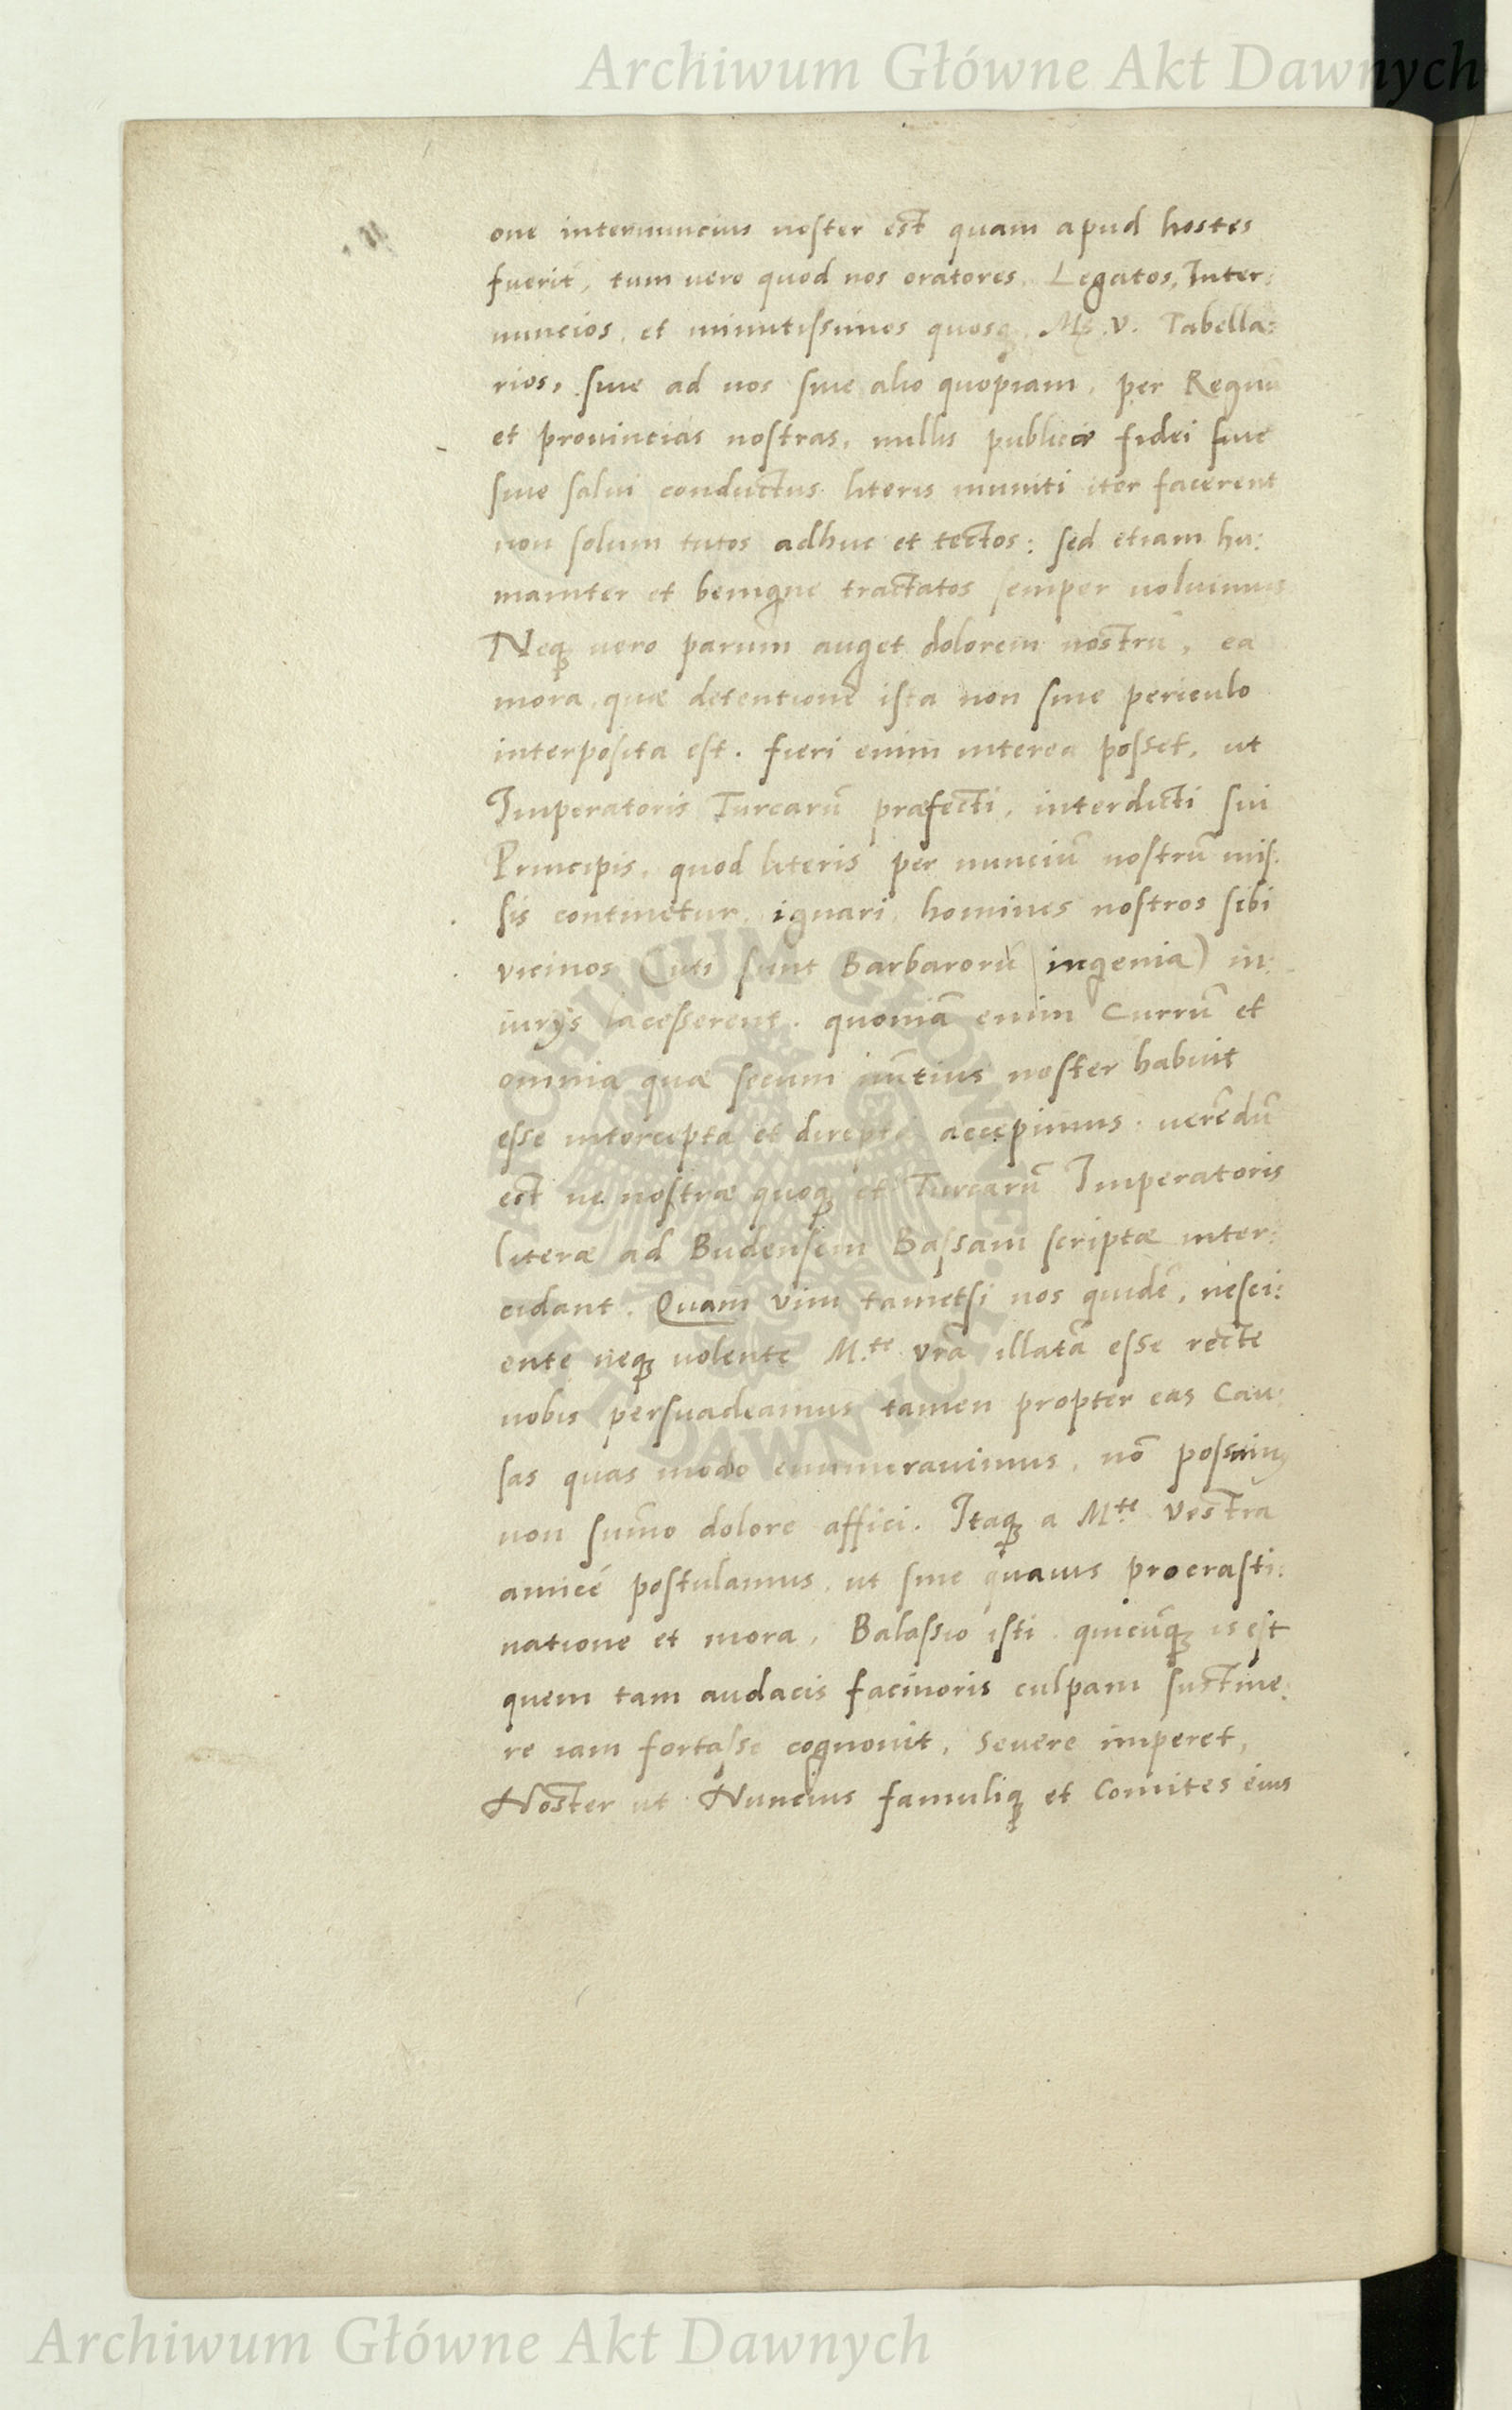 Archiwum Główne Akt Dawnych
one internuncius noster est quam apud hostes
fuerit, tum vero quod nos oratores, Legatos, Inter:
nuncios, et minutissimos quosq; Mtis. V. Tabella:
rios, siue ad nos siue alio quopiam, per Regnũ
et prouincias nostras, nullis publicæ fidei siue
siue salui conductus literis muniti iter facerent
non solum tutos adhuc et tectos: sed etiam hu:
maniter et benigne tractatos semper uoluimus
Neq; uero parum auget dolorem nostrũ, ea
mora, quæ detentione ista non sine periculo
interposita est. fieri enim interea posset, ut
Imperatoris Turcarũ præfecti, interdicti sui
Principis, quod literis per nunciũ nostrũ mis:
sis continetur, ignari, homines nostros sibi
vicinos (uti sunt Barbarorũ ingenia) in:
iurijs lacesserent. quoniã enim Currũ et
omnia quæ secum nuntius noster habuit
esse intercepta et direpta accepimus. uerẽdũ
est ne nostræ quoq; et Turcarũ Imperatoris
literæ ad Budensem Bassam scriptæ inter:
cidant. Quam vim tametsi nos quidẽ, nesci:
ente neq; uolente M.te vrã illatã esse recte
nobis persuadeamus tamen propter eas Cau:
sas quas modo enumerauimus, nõ possumus
non sum̃o dolore affici. Itaq; a M.te Vestra
amicé postulamus, ut sine quauis procrasti:
natione et mora, Balassio isti quicũq; is est
quem tam audacis facinoris culpam sustine:
re iam fortasse cognouit, seuere imperet,
Noster ut Nuncius famuliq; et Comites eius
ARCHIWUM GŁÓWNE
AKT DAWNYCH
Archiwum Główne Akt Dawnych